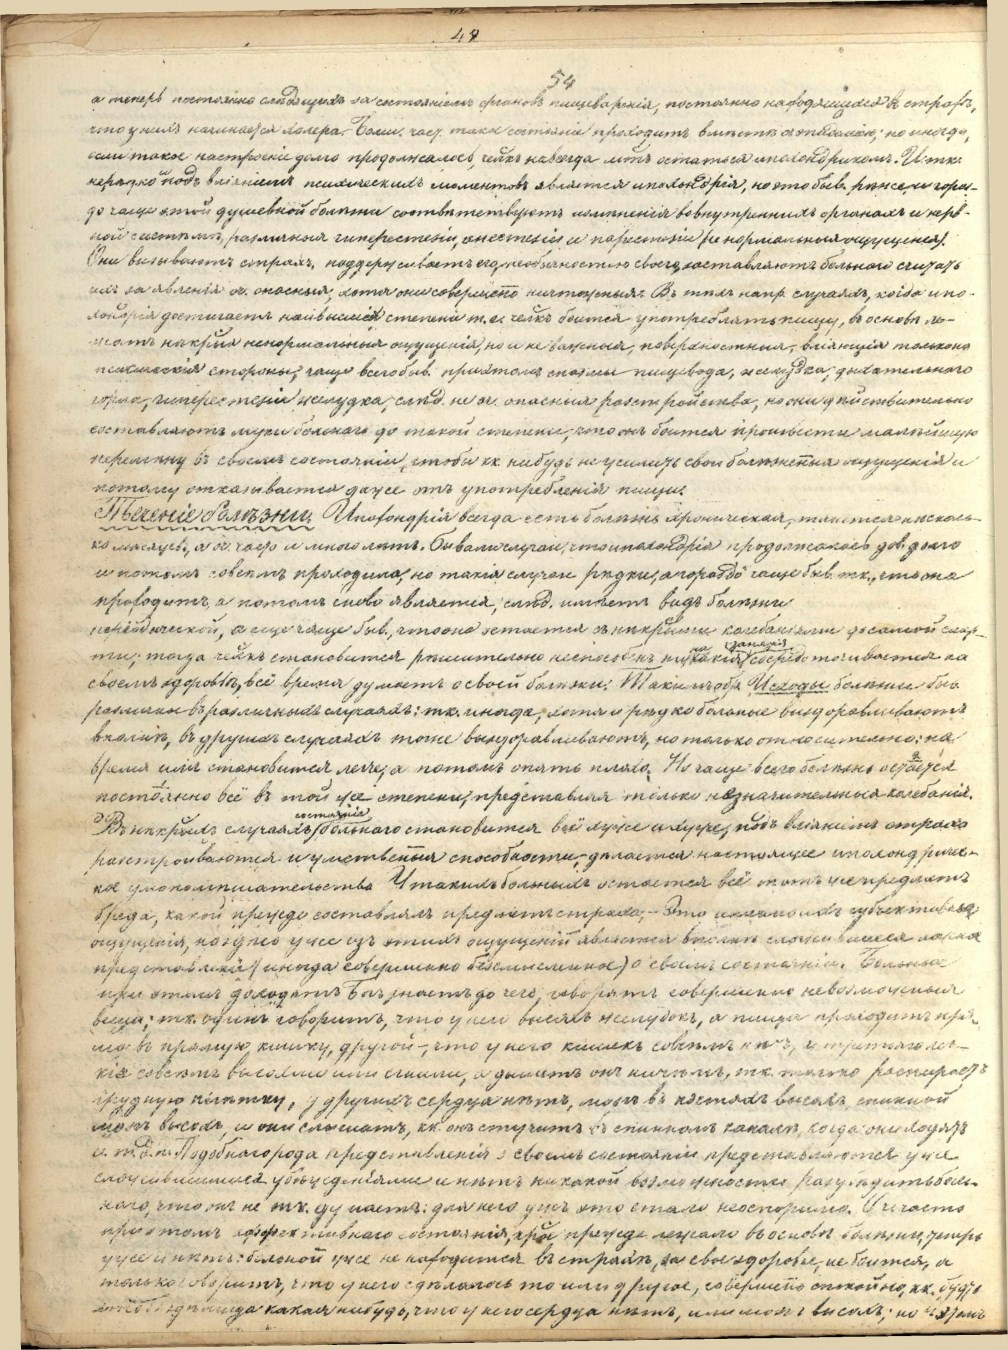 49
54
а теперь постоянно слѣдящихъ за состояніемъ органовъ пищеваренія, постоянно находящихся въ страхѣ,
что у нихъ начинается холера. Больш. част. такое состояніе проходитъ вмѣстѣ съ эпидеміею; но иногда,
если такое настроеніе долго продолжалось, челкъ навсегда мжтъ остаться ипохондрикомъ. И тк.
нерѣдко подъ вліяніемъ психическихъ моментовъ является ипохондрія, но это быв. рѣже, и гораз-
до чаще этой душевной болѣзни соотвѣтствуютъ измѣненія во внутреннихъ органахъ и нерв-
ной системѣ, различныя гиперестезіи, анестезіи и парестезіи (ненормальныя ощущенія).
Они вызываютъ страхъ, поддерживаетъ его, необычностью своею заставляютъ больнаго считать
ихъ за явленія оч. опасныя, хотя они совершенно ничтожныя. Въ тѣхъ напр. случаяхъ, когда ипо-
хондрія достигаетъ наивысшей степени т.е. челкъ боится употреблять пищу, въ основѣ ле-
жатъ нѣкрыя ненормальныя ощущенія, но и не важныя, поверхностныя, вліяющія только на
психическія стороны; чаще всего быв. при этомъ спазмы пищевода, желудка, дыхательнаго
горла, гиперестезіи желудка, слѣд. не оч. опасныя разстройства, но они дѣйствительно
составляютъ муки больнаго до такой степени, что онъ боится произвести малѣйшую
перемѣну въ своемъ состояніи, чтобы кк. нибудь не усилить свои болѣзненныя ощущенія и
потому отказывается даже отъ употребленія пищи.
Теченіе болѣзни. Ипохондрія всегда есть болѣзнь хроническая, тянется нѣсколь-
ко мѣсяцевъ, а оч. часто и много лѣтъ. Бывали случаи, что ипохондрія продолжалась дов. долго
и потомъ совсѣмъ проходила, но такія случаи рѣдки, а гораздо чаще быв. тк., что она
проходитъ, а потомъ снова является, слѣд. имѣетъ видъ болѣзни
періодической, а еще чаще быв., что она остается съ нѣкрыми колебаніями до самой смер-
ти; тогда челкъ становится рѣшительно неспособнъ ни на какія занятія, сосредоточивается на
своемъ здоровьѣ, всё время думаетъ о своей болѣзни. Такимъ обр. Исходы болѣзни быв.
различны въ различныхъ случаяхъ: тк. иногда, хотя и рѣдко больные выздоравливаютъ
вполнѣ, въ другихъ случаяхъ тоже выздоравливаютъ, но только относительно: на
время имъ становится легче, а потомъ опять плохо. Но чаще всего болѣзнь остается
постоянно всё въ той же степени, представляя только незначительныя колебанія.
Въ нѣкрыхъ случаяхъ состояніе больнаго становится всё хуже и хуже, подъ вліяніемъ страха
разстроиваются и умственныя способности, дѣлается настоящее ипохондричес-
кое умопомѣшательство. У такихъ больныхъ остается всё тотъ же предметъ
бреда, какой прежде составлялъ предметъ страха, – Это субъективныя
ощущенія, но здѣсь уже изъ этихъ ощущеній является вполнѣ сложившееся ложное
представленіе (иногда совершенно безсмысленное) о своемъ состояніи. Больные
при этомъ доходятъ Богъ знаетъ до чего, говорятъ совершенно невозможныя
вещи; тк. одинъ говоритъ, что у него высохъ желудокъ, а пища проходитъ пря-
мо въ прямую кишку, другой –, что у него кишекъ совсѣмъ нѣтъ, у третьяго лег-
кія совсѣмъ высохли или сгнили, а дышетъ онъ ничѣмъ, тк. только распираетъ
грудную клѣтку, у другихъ сердца нѣтъ, мозгъ въ костяхъ высохъ, спинной
мозгъ высохъ, и они слышатъ, кк. онъ стучитъ въ спинномъ каналѣ, когда они ходятъ
и т.д. Подобнаго рода представленія о своемъ состояніи представляются уже
сложившимися убѣжденіями и нѣтъ никакой возможности разубѣдить боль-
наго, что онъ не тк. думаетъ: для него ужъ это стало неоспоримо. И часто
при этомъ аффективнаго состоянія, крое прежде лежало въ основѣ болѣзни, теперь
уже и нѣтъ: больной уже не находится въ страхѣ, за свое здоровье, не боится, а
только говоритъ, что у него сдѣлалось то или другое, совершенно спокойно, кк. будто
какая нибудь, что у него сердца нѣтъ, или мозгъ высохъ; но